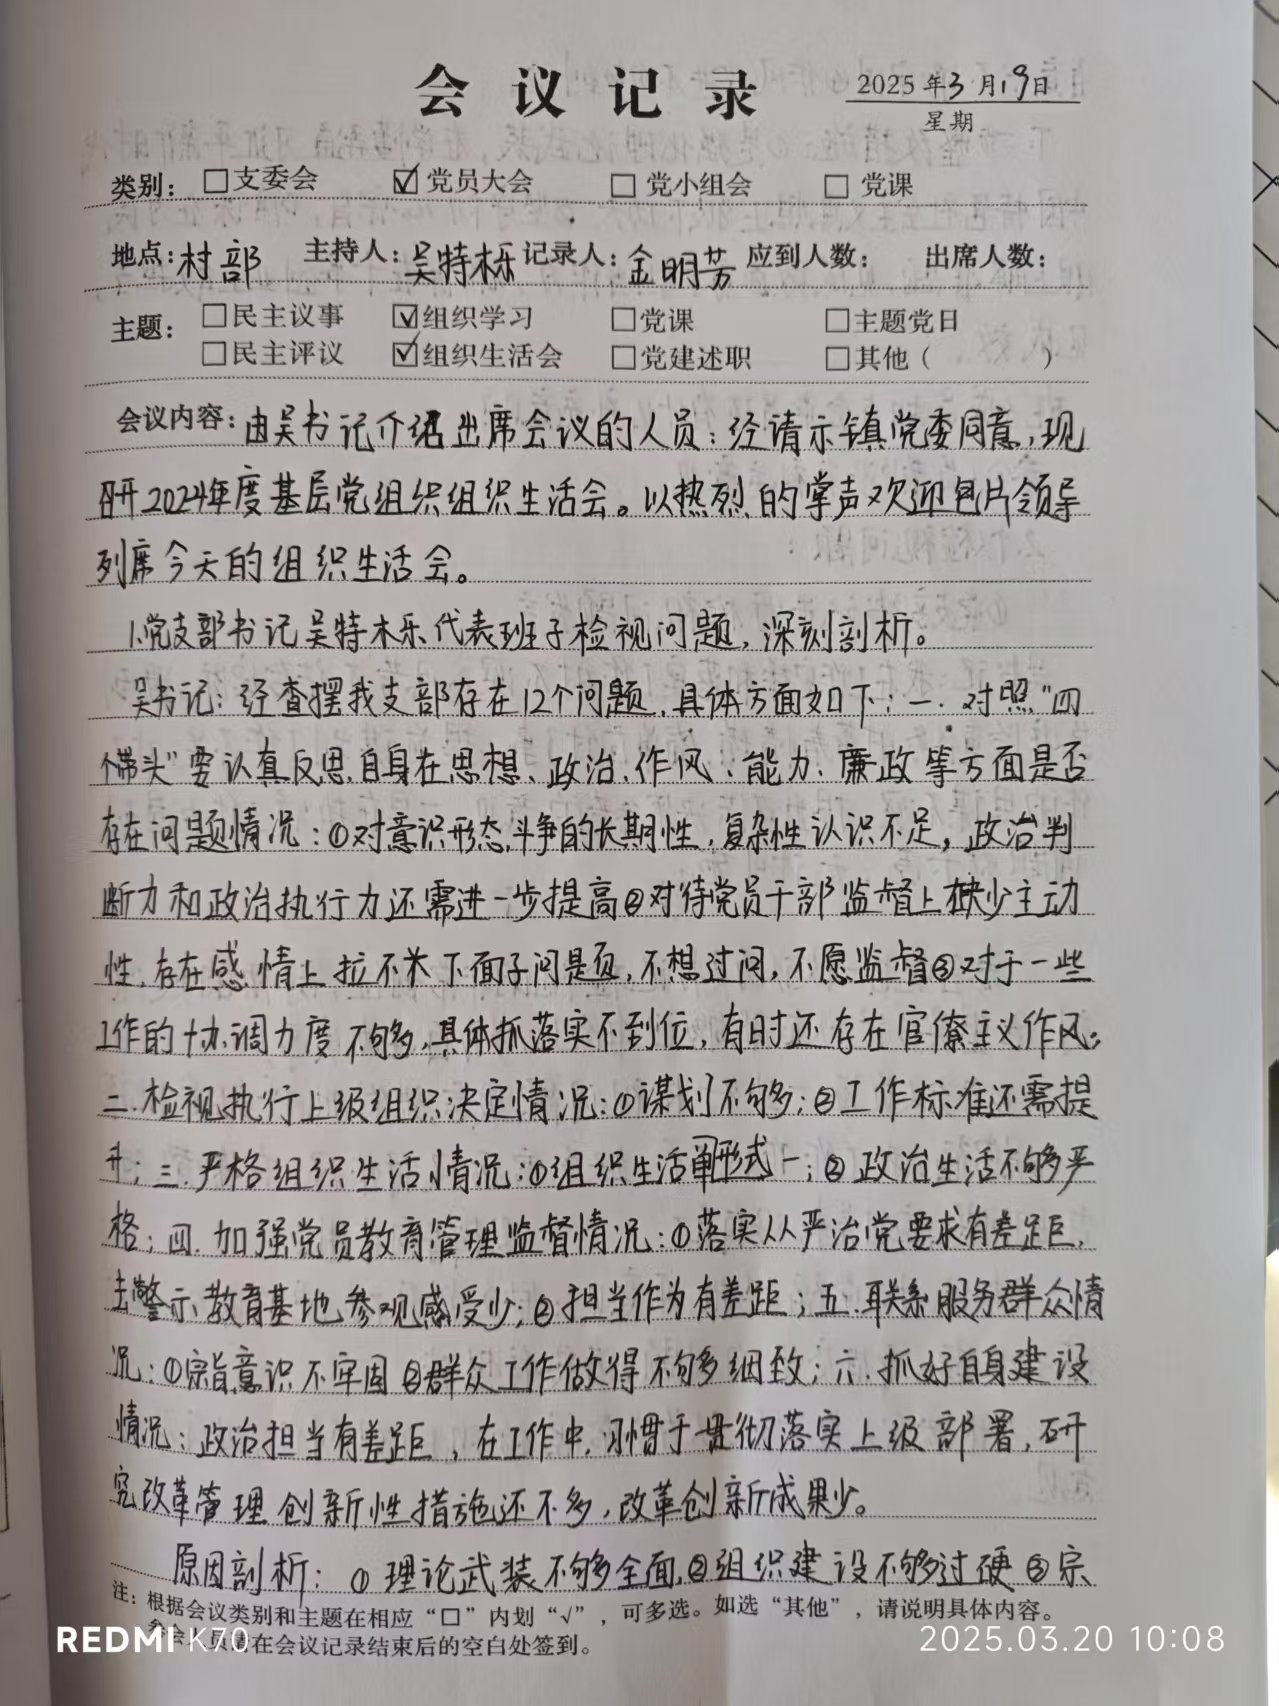 会议记录
2025年3月19日
星期
类别：□支委会 ☑党员大会 □党小组会 □党课
地点：村部 主持人：吴特栎 记录人：金明芳 应到人数： 出席人数：
主题：□民主议事 ☑组织学习 □党课 □主题党日
□民主评议 ☑组织生活会 □党建述职 □其他（ ）
会议内容：由吴书记介绍出席会议的人员：经请示镇党委同意，现
召开2024年度基层党组织组织生活会。以热烈的掌声欢迎包片领导
列席今天的组织生活会。
1.党支部书记吴特木乐代表班子检视问题，深刻剖析。
吴书记：经查摆我支部存在12个问题，具体方面如下：一．对照"四
个带头"要认真反思自身在思想、政治、作风、能力、廉政等方面是否
存在问题情况：①对意识形态斗争的长期性，复杂性认识不足，政治判
断力和政治执行力还需进一步提高②对待党员干部监督上缺少主动
性，存在感情上拉不下面子问是页，不想过问，不愿监督③对于一些
工作的协调力度不够多，具体抓落实不到位，有时还存在官僚主义作风；
二．检视执行上级组织决定情况：①谋划不够多；②工作标准还需提
升；三．严格组织生活情况：①组织生活形式一；②政治生活不够严
格；四．加强党员教育管理监督情况：①落实从严治党要求有差距，
去警示教育基地参观感受少；②担当作为有差距；五．联系服务群众情
况：①宗旨意识不牢固②群众工作做得不够多细致；六．抓好自身建设
情况：政治担当有差距，在工作中，习惯于贯彻落实上级部署，研
究改革管理创新性措施还不多，改革创新成果少。
原因剖析：①理论武装不够多全面，②组织建设不够过硬③宗
注：根据会议类别和主题在相应“□”内划“√”，可多选。如选“其他”，请说明具体内容。
参会人员请在会议记录结束后的空白处签到。
REDMI K70
2025.03.20 10:08